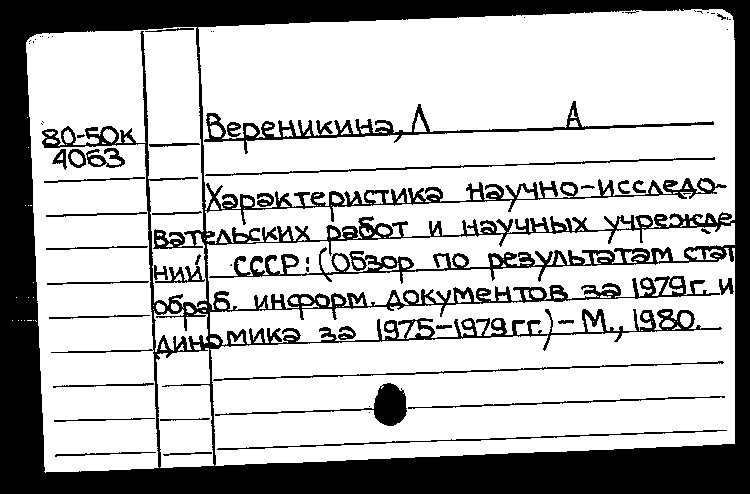 80-50к
4063
Вереникина, Л А
Характеристика научно-исследо-
вательских работ и научных учрежде-
ний СССР: (Обзор по результатам стат
обраб. информ. документов за 1979г. и
динамика за 1975-1979гг.)-М., 1980.